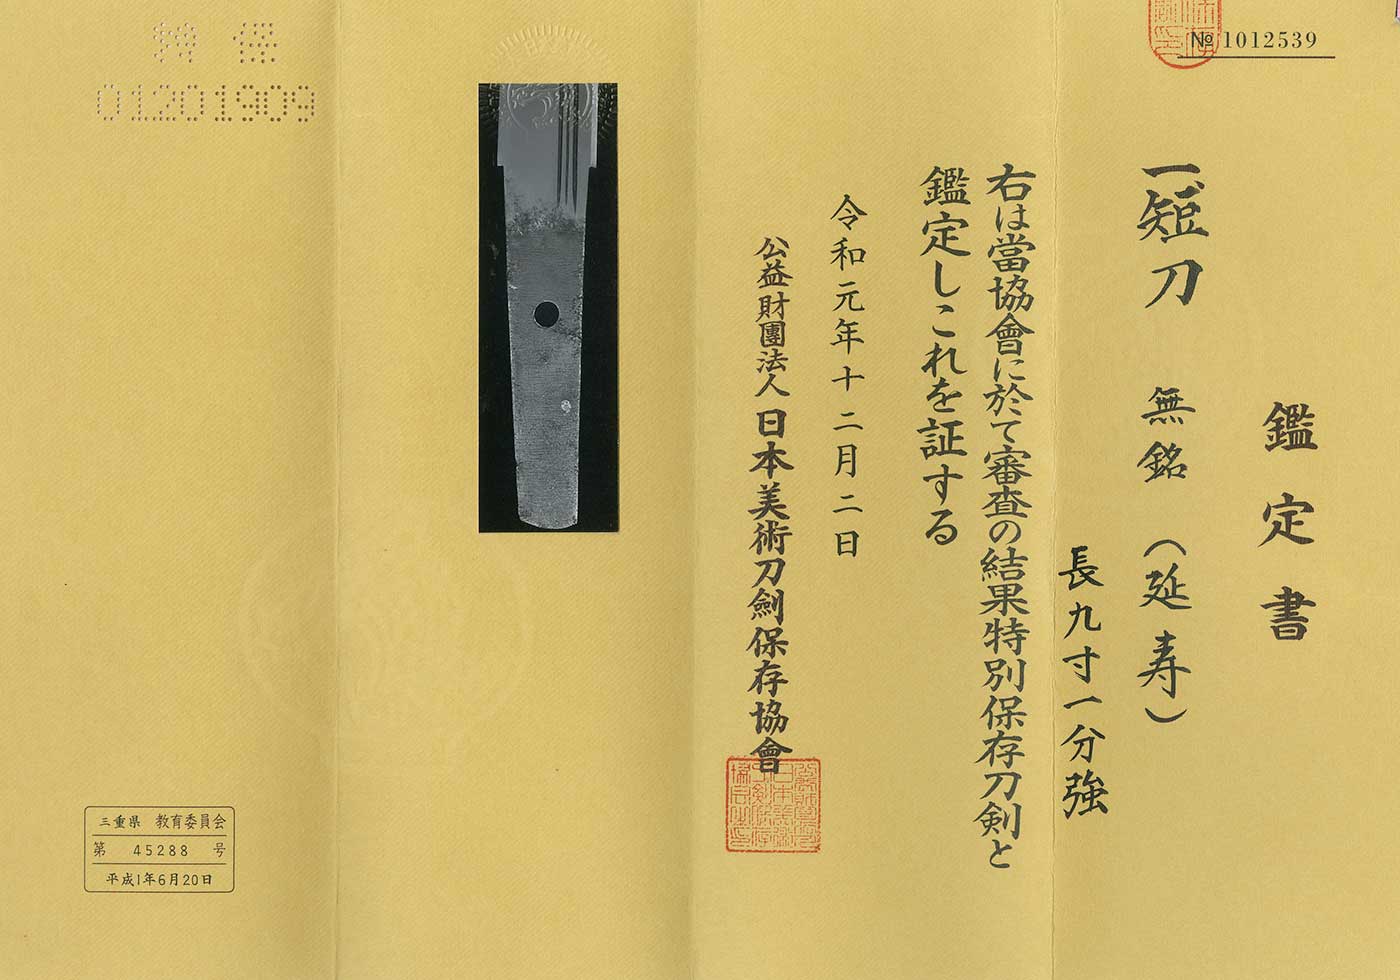 № 1012539
鑑定書
一、短刀 無銘(延寿)
長九寸一分強
右は當協會に於て審査の結果特別保存刀剣と
鑑定しこれを証する
令和元年十二月二日
公益財團法人日本美術刀劍保存協會
特保
01201909
三重県 教育委員会
第 45288 号
平成1年6月20日